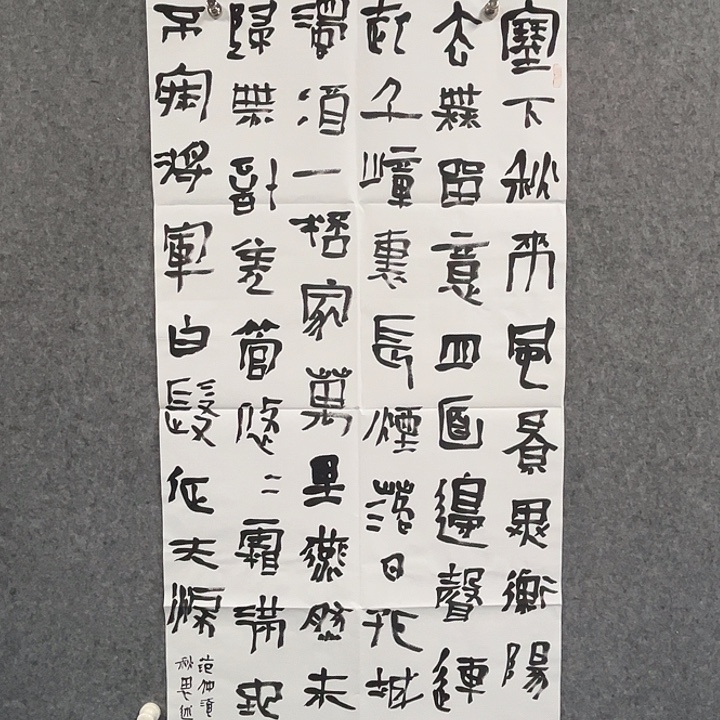 塞下秋來風景異衡陽
去無留意四面邊聲連
起千嶂裏長煙落日孤城
濁酒一桮家萬里燕然未
歸無計羌管悠〻霜滿地
不寐將軍白髮征夫淚
范仲淹
秋思